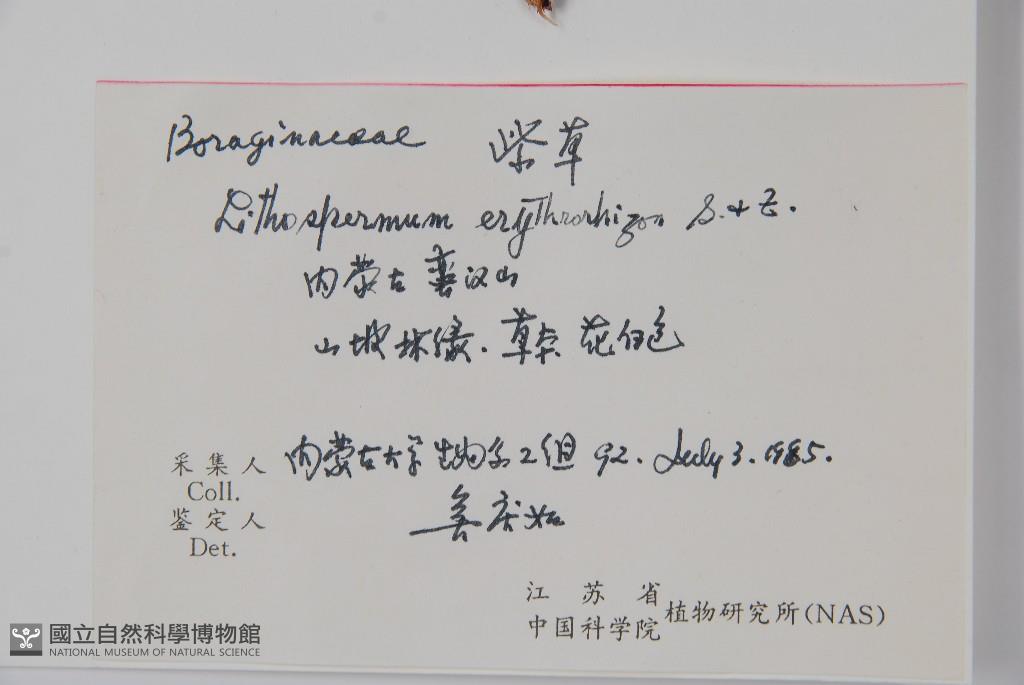 Boraginaceae 紫草
Lithospermum erythrorhizon S. & Z.
内蒙古 蛮汉山
山坡林缘. 草本 花白色
采集人 内蒙古大学生物系2组 92. July 3. 1985.
Coll.
鉴定人
Det.
江苏省
中国科学院 植物研究所(NAS)
國立自然科學博物館
NATIONAL MUSEUM OF NATURAL SCIENCE